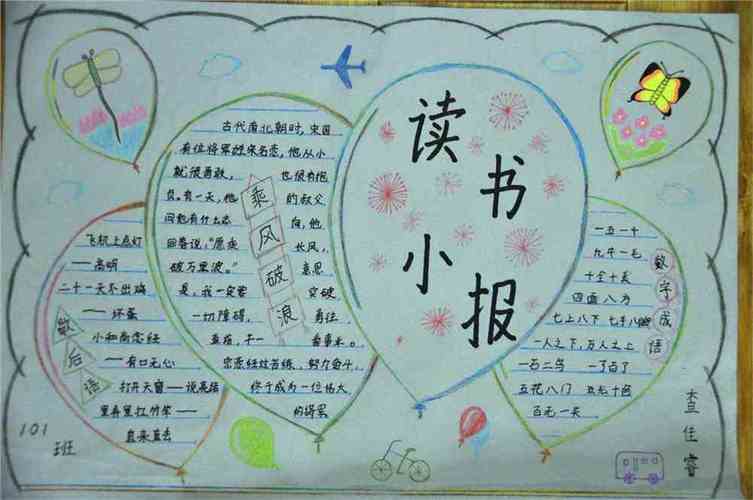 读书小报
古代南北朝时，宋国
有位将军姓宋名悫，他从小
就很勇敢，也很有抱
负。有一天，他的叔父
问他有什么志向，他
回答说，“愿乘长风，
破万里波。”意思
是，我一定要突破
一切障碍，勇往
直前，干一番事业。
宗悫经过苦练，努力奋斗，
终于成为一位伟大
的将军
乘风破浪
飞机上点灯
——高明
二十一天不出鸡
——坏蛋
小和尚念经
——有口无心
打开天窗——说亮话
里弄里扛竹竿——
直来直去
歇后语
一五一十
九牛一毛
十全十美
四面八方
七上八下 七手八脚
一人之上，万人之上
一石二鸟 一了百了
五花八门 五光十色
百无一失
数字成语
101
班
查佳睿